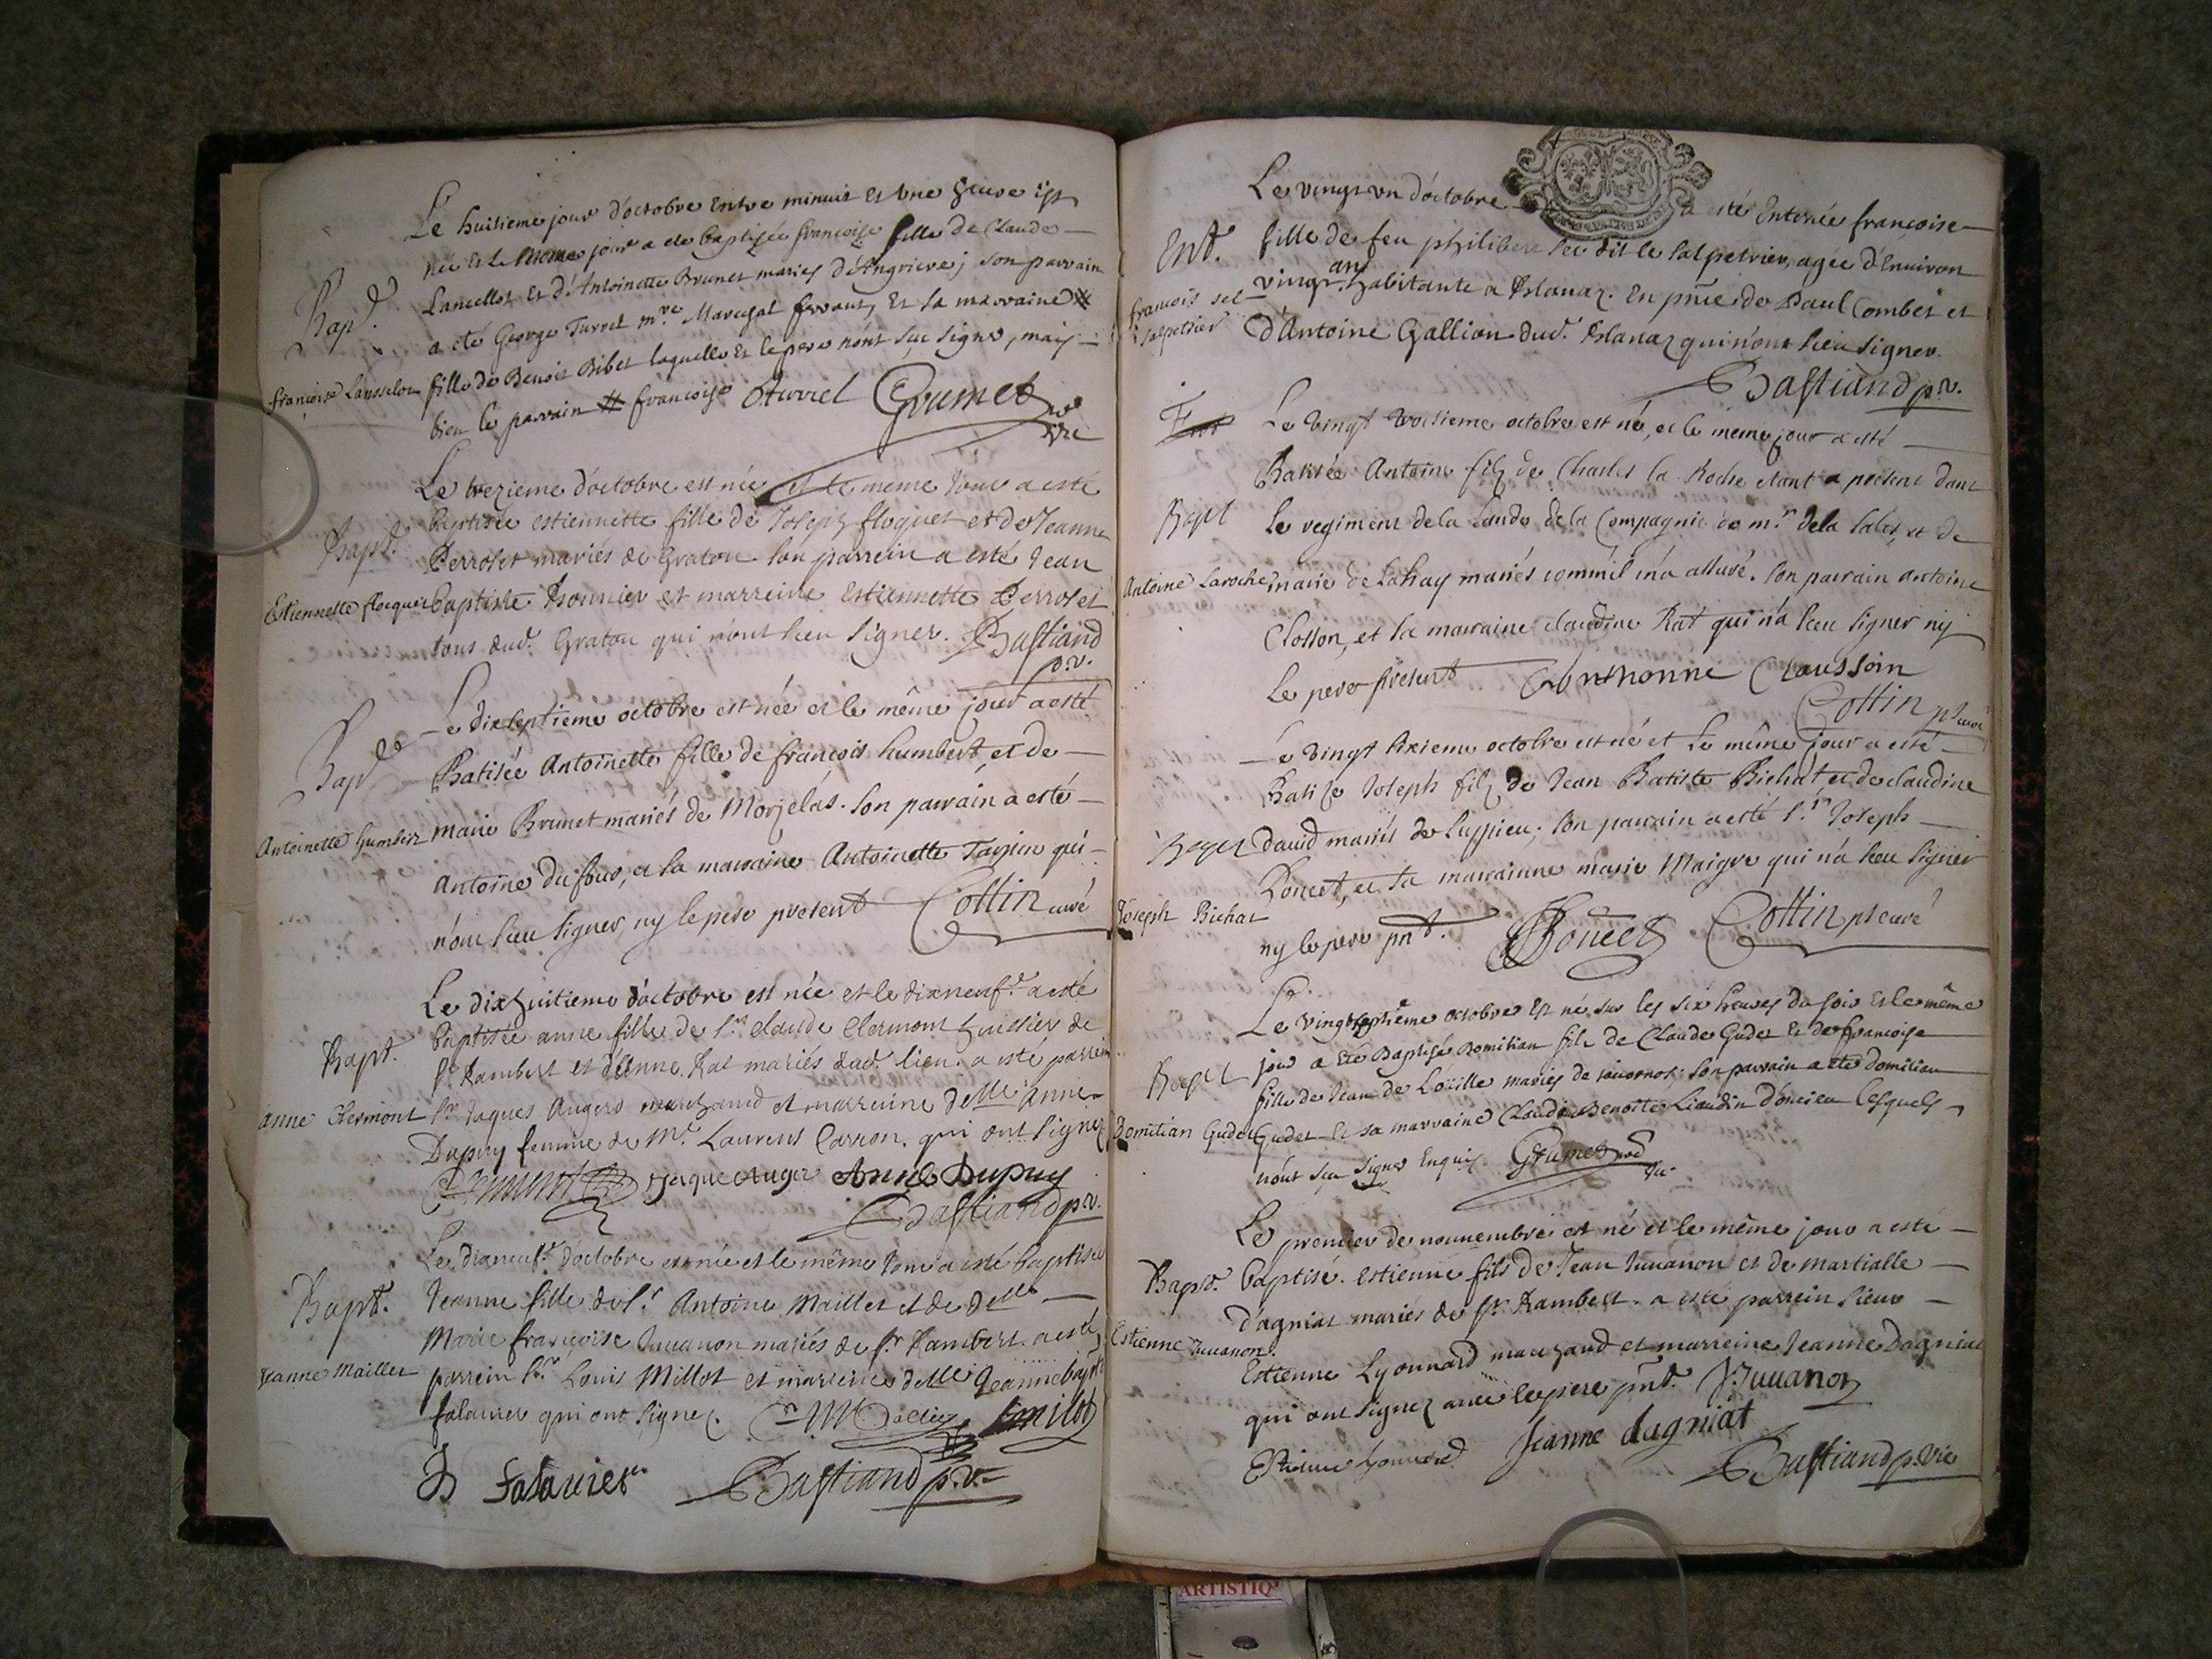 Le huitieme jour d'octobre Entre minuit et vne heure Est
née et le meme jour a ete baptisée francoise fille de Claude
Bapt.
Lancellot et d'Antoinette Brunet mariés d'Angrieve; son parrain
a eté George Turrel mre Marechal ferrant, et la marraine #
françoise Lansselot
fille de Benoit Bibet laquelle et le pere n'ont sçu signer, mais
bien le parrain # francoise Gturrel Grumet
vic
Le trezieme d'octobre est née et le meme Jour a esté
baptisée estiennette fille de Joseph floquet et de Jeanne
Bapt.
Perroset mariés de Graton son parrein a esté Jean
Estiennette floquet
baptiste et marreine Estiennette Perroset
tous dud. Graton qui n'ont sceu signer. Bastiand
p.v.
Le dixseptieme octobre est née et le même jour a esté
Bapt
Batisée Antoinette fille de françois humbert, et de
Antoinette humbert
marie Brunet mariés de Morgelas. son parrain a esté
antoine du four, et la marraine Antoinette Tarpin qui
n'ont sceu signer, ny le pere present Cottin curé
Le dixhuitieme d'octobre est née et le dixneufe. a esté
Bapt.
baptisée anne fille de sr. claude Clermont huissier de
St. Rambert et d'Anne Rat mariés dud. lieu. a esté parrein
anne Clermont
sr. Jaques Augerd marchand et marreine delle anne
Dupuy femme de Mr. Laurens Carron. qui ont signez
Jaque Auger Anne Dupuy
Bastiand p.v.
Le dixneufe. d'octobre est née et le même Jour a esté baptisée
Bapt.
Jeanne fille de sr. Antoine Maillet et de delle
Marie françoise Juuanon mariés de St. Rambert. a esté
Jeanne Maillet
parrein sr. Louis Millot et marreine delle Jeanne bapte
falauier qui ont signez. Millot
falauier Bastiand p.v.
Le vingt vn d'octobre a esté Enterrée francoise
Ent.
fille de feu philibert sei dit le salpetrier, agée d'Enuiron
francois sei
salpetrier
vingt ans habitante a Eslanaz. En pnce de Paul Combet et
d'Antoine Gallian dud. Eslanaz qui n'ont sceu signer.
Bastiand p.v.
Ent
Le vingt troisieme octobre est né, et le meme jour a esté
Batisée Antoine filz de Charles la Roche etant a present dans
Bapt
le regiment de la Lande de la Compagnie de mr. de la sales, et de
Antoine Laroche
marie de Lahay mariés comm'il m'a assuré. son parrain antoine
Closson, et la marraine claudine Rat qui n'a sceu signer ny
Le pere present Anthonne Claussoin
Cottin pt curé
Le vingt sixieme octobre est né et le même jour a esté
Batisé Joseph filz de Jean Batiste Bichat, et de claudine
Bapt
dauid mariés de Luppieu; son parrain a esté sr. Joseph
Doncet, et la marrainne marie Maigre qui n'a sceu signer
Joseph Bichat
ny le pere pnt. Doncet Cottin pt curé
Le vingtseptième octobre Est né sur les six heures du soir et le même
jour a Eté Baptisé Domitian fils de Claude Gudet et de francoise
Bapt
fille de Jean de Louille mariés de jauornoz. son parrain a ete domitian
Domitian Gudet
Gudet et sa marraine Claudine Benoite Liaudin d'oncieu lesquels
n'ont sçu signer Enquis. Grumet
vic
Le premier de nouuembre est né et le même jour a esté
Bapt.
baptisé. estienne fils de Jean Juuanon et de martialle
d'agniat mariés de St. Rambert. a esté parrein sieur
Estienne Juuanon.
Estienne Lyonnard marchand et marreine Jeanne Dagniat
qui ont signez auec le pere pnt. Juuanon
Estienne Lyonnard Jeanne dagniat
Bastiand p. vic
ARTISTIQ